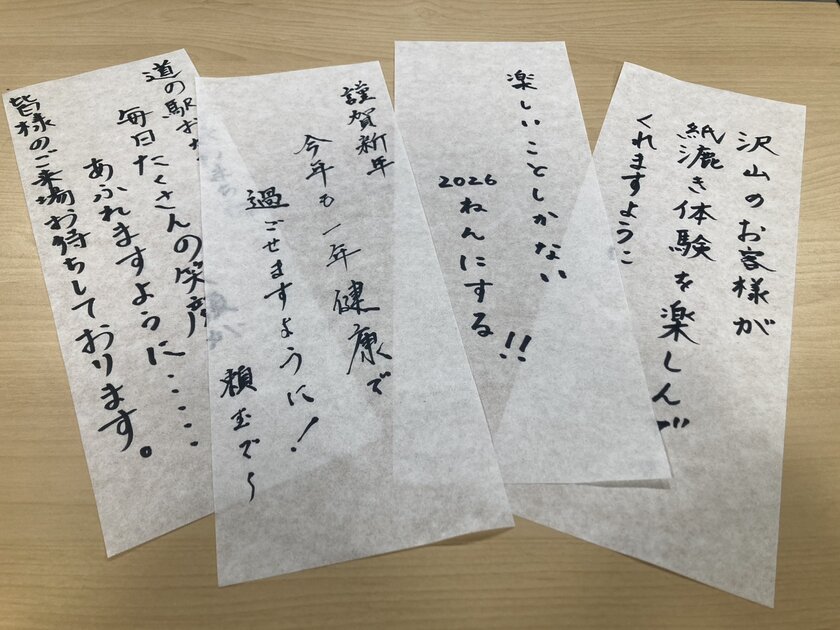 沢山のお客様が
紙漉き体験を楽しんで
くれますように
楽しいことしかない
2026ねんにする!!
謹賀新年
今年も一年健康で
過ごせますように!
道の駅お
毎日たくさんの笑顔
あふれますように.....
皆様のご来場お待ちしております。